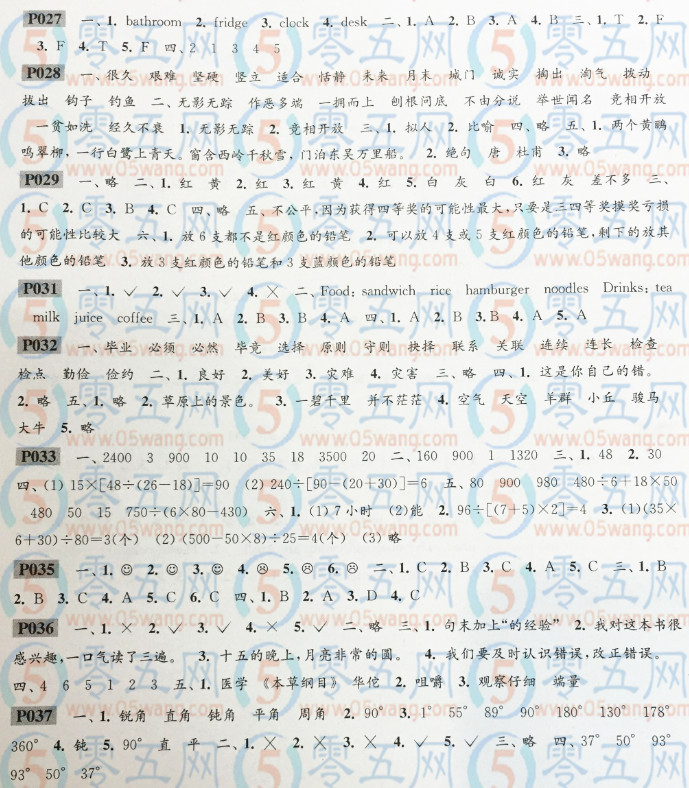 P027 一、1. bathroom 2. fridge 3. clock 4. desk 二、1. A 2. B 3. A 4. B 三、1. T 2. F
3. F 4. T 5. F 四、2 1 3 4 5
P028 一、很久 艰难 坚硬 竖立 适合 恬静 未来 月末 城门 诚实 掏出 淘气 拨动
拔出 钩子 钓鱼 二、无影无踪 作恶多端 一拥而上 刨根问底 不由分说 举世闻名 竞相开放
一贫如洗 经久不衰 1. 无影无踪 2. 竞相开放 三、1. 拟人 2. 比喻 四、略 五、1. 两个黄鹂
鸣翠柳，一行白鹭上青天。窗含西岭千秋雪，门泊东吴万里船。 2. 绝句 唐 杜甫 3. 略
P029 一、略 二、1. 红 黄 2. 红 3. 红 黄 4. 红 5. 白 灰 白 6. 红 灰 差不多 三、
1. C 2. C 3. B 4. C 四、略 五、不公平，因为获得四等奖的可能性最大，只要是三四等奖摸奖亏损
的可能性比较大 六、1. 放6支都不是红颜色的铅笔 2. 可以放4支或5支红颜色的铅笔，剩下的放其
他颜色的铅笔 3. 放3支红颜色的铅笔和3支蓝颜色的铅笔
P031 一、1. ✓ 2. ✓ 3. ✓ 4. × 二、Food: sandwich rice hamburger noodles Drinks: tea
milk juice coffee 三、1. A 2. B 3. B 4. A 四、1. A 2. B 3. B 4. A 5. A
P032 一、毕业 必须 必然 毕竟 选择 原则 守则 抉择 联系 关联 连续 连长 检查
检点 勤俭 俭约 二、1. 良好 2. 美好 3. 灾难 4. 灾害 三、略 四、1. 这是你自己的错。
2. 略 五、1. 略 2. 草原上的景色。 3. 一碧千里 并不茫茫 4. 空气 天空 羊群 小丘 骏马
大牛 5. 略
P033 一、2400 3 900 10 10 35 18 3500 20 二、160 900 1 1320 三、1. 48 2. 30
四、(1) 15×[48÷(26-18)]=90 (2) 240÷[90-(20+30)]=6 五、80 900 980 480÷6+18×50
480 50 15 750÷(6×80-430) 六、1. (1) 7小时 (2)能 2. 96÷[(7+5)×2]=4 3. (1)(35×
6+30)÷80=3(个) (2) (500-50×8)÷25=4(个) (3) 略
P035 一、1. ☺ 2. ☺ 3. ☺ 4. ☹ 5. ☹ 6. ☹ 二、1. C 2. B 3. C 4. A 5. C 三、1. B
2. B 3. C 4. A 5. C 6. C 四、1. B 2. A 3. D 4. C
P036 一、1. × 2. ✓ 3. ✓ 4. × 5. ✓ 二、略 三、1. 句末加上“的经验” 2. 我对这本书很
感兴趣，一口气读了三遍。 3. 十五的晚上，月亮非常的圆。 4. 我们要及时认识错误，改正错误。
四、4 6 5 1 2 3 五、1. 医学 《本草纲目》 华佗 2. 咀嚼 3. 观察仔细 端量
P037 一、1. 锐角 直角 钝角 平角 周角 2. 90° 3. 1° 55° 89° 90° 180° 130° 178°
360° 4. 钝 5. 90° 直 平 二、1. × 2. × 3. × 4. ✓ 5. ✓ 三、略 四、37° 50° 93°
93° 50° 37°
零五网
www.05wang.com